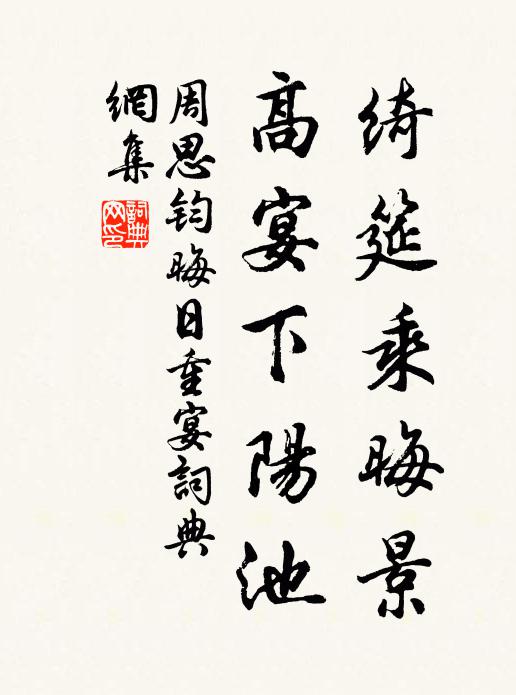 綺筵乘晦景
高宴下陽池
周思鈞晦日重宴詞典
網集
詞典網印